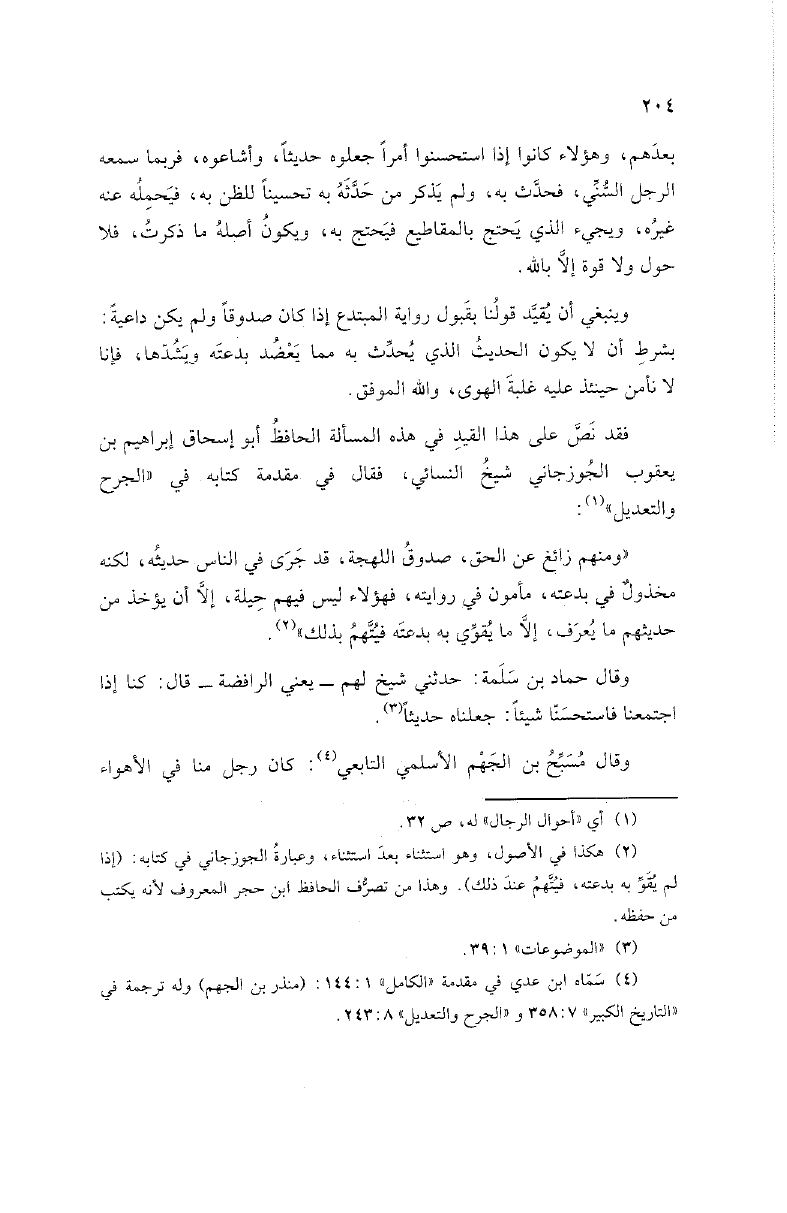 ٢٠٤
بعدَهم، وهؤلاء كانوا إذا استحسنوا أمراً جعلوه حديثاً، وأشاعوه، فربما سمعه
الرجل السُّنِّي، فحدَّث به، ولم يَذكر من حَدَّثَهُ به تحسيناً للظن به، فيَحمِلُه عنه
غيرُه، ويجيء الذي يَحتج بالمقاطيع فيَحتج به، ويكونُ أصلهُ ما ذكرتُ، فلا
حول ولا قوة إلاَّ بالله.
وينبغي أن يُقيَّد قولُنا بقَبول رواية المبتدع إذا كان صدوقاً ولم يكن داعيةً:
بشرطِ أن لا يكون الحديثُ الذي يُحدِّث به مما يَعْضُد بدعتَه ويَشُدّها، فإنا
لا نأمن حينئذ عليه غلبةَ الهوى، والله الموفق.
فقد نَصَّ على هذا القيدِ في هذه المسألة الحافظُ أبو إسحاق إبراهيم بن
يعقوب الجُوزجاني شيخُ النسائي، فقال في مقدمة كتابه في «الجرح
والتعديل»(١):
«ومنهم زائغ عن الحق، صدوقُ اللهجة، قد جَرَى في الناس حديثُه، لكنه
مخذولٌ في بدعته، مأمون في روايته، فهؤلاء ليس فيهم حِيلة، إلاَّ أن يؤخذ من
حديثهم ما يُعرَف، إلاَّ ما يُقوِّي به بدعتَه فيُتَّهمُ بذلك»(٢).
وقال حماد بن سَلَمة: حدثني شيخ لهم ــ يعني الرافضة ــ قال: كنا إذا
اجتمعنا فاستحسَنّا شيئاً: جعلناه حديثاً(٣).
وقال مُسَبِّحُ بن الجَهْم الأسلمي التابعي(٤): كان رجل منا في الأهواء
(١) أي «أحوال الرجال» له، ص ٣٢.
(٢) هكذا في الأصول، وهو استثناء بعدَ استثناء، وعبارةُ الجوزجاني في كتابه: (إذا
لم يُقَوِّ به بدعته، فيُتَّهمُ عندَ ذلك). وهذا من تصرُّف الحافظ ابن حجر المعروف لأنه يكتب
من حفظه.
(٣) «الموضوعات» ١:٣٩.
(٤) سَمّاه ابن عدي في مقدمة «الكامل» ١:١٤٤: (منذر بن الجهم) وله ترجمة في
«التاريخ الكبير» ٧:٣٥٨ و «الجرح والتعديل» ٨:٢٤٣.